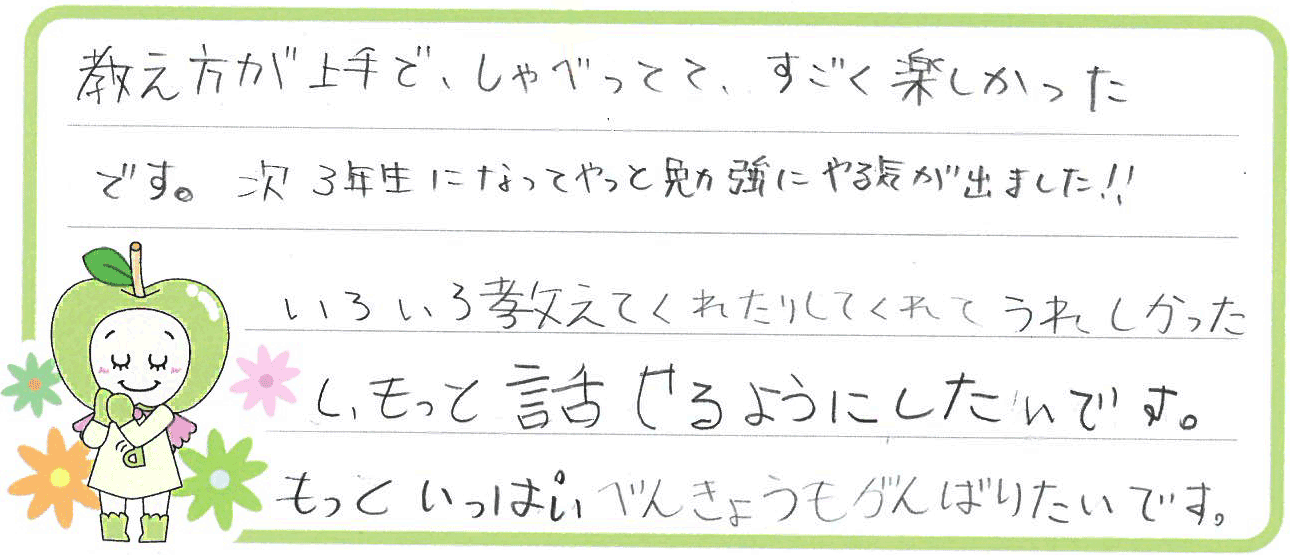 教え方が上手で、しゃべってて、すごく楽しかった
です。次3年生になってやっと勉強にやる気が出ました!!
いろいろ教えてくれたりしてくれてうれしかった
し、もっと話せるようにしたいです。
もっといっぱいべんきょうもがんばりたいです。